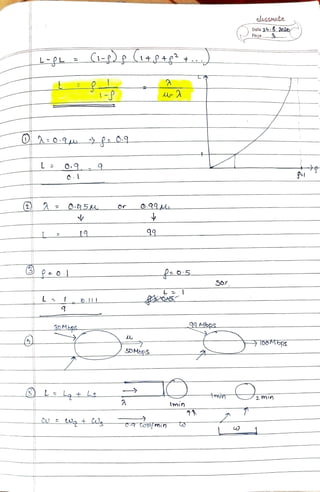 classmate
Date
Page 8
L-ρL = (1-ρ) ρ (1+ρ+ρ²+...)
L = ρ 1/(1-ρ) = λ/(μ-λ)
L
1
ρ=1
→ρ
① λ=0.9μ ⇒ ρ=0.9
L = 0.9/0.1 = 9
② λ = 0.95μ or 0.99μ
↓ ↓
L = 19 99
③ ρ=0.1 ρ=0.5
L = 1/9 = 0.111 L=1
50Mbps μ 99Mbps
50Mbps →100Mbps
⑤ L = Lq + Ls → λ 1min 1min 2min
ω = ωq + ωs 0.9 cust/min ω
ω